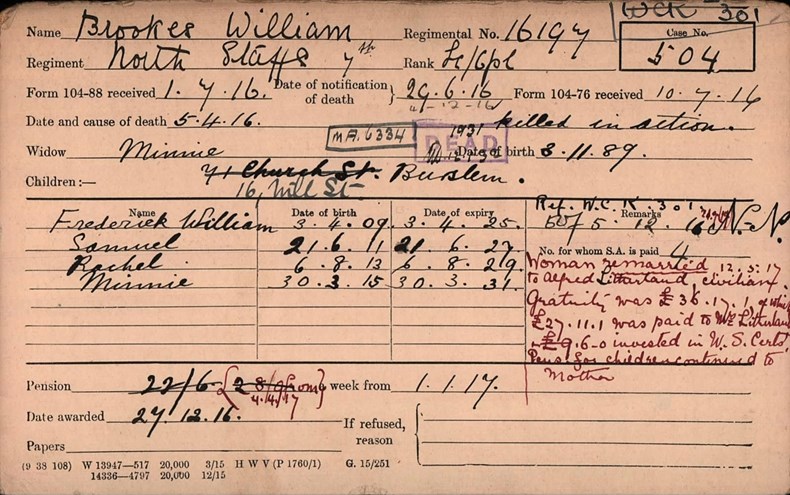 WCK 301
Name Brookes William Regimental No. 16197 Case No. 504
Regiment North Staffs 7th Rank Lc/Cpl
Form 104-88 received 1.7.16. Date of notification of death } 29.6.16 Form 104-76 received 10.7.16
4-12-16
Date and cause of death 5.4.16. killed in action.
MA.6334 DEAD 1931
Widow Minnie Date of birth 3.11.89.
Children:— 71 Church St. Burslem.
16, Mill St.
Ref. W.C.K. 301
Name Date of birth Date of expiry Remarks
Frederick William 3.4.09. 3.4.25. 50/5.12.16 N.N.
Samuel 21.6.11 21.6.27
No. for whom S.A. is paid 4
Rachel 6.8.13 6.8.29.
Minnie 30.3.15 30.3.31.
Woman remarried 12.3.17
to Alfred Litherland, civilian.
Gratuity was £36.17.1, of which
£27.11.1 was paid to Mrs Litherland
£9.6-0 invested in W.S. Certs.
Pens. for children continued to
Mother
Pension 22/6 {28/9 from 4/4/17} a week from 1.1.17.
Date awarded 27.12.16.
If refused, reason {
Papers
(9 38 108) W 13947—517 20,000 3/15 H W V (P 1760/1) G. 15/251
14336—4797 20,000 12/15